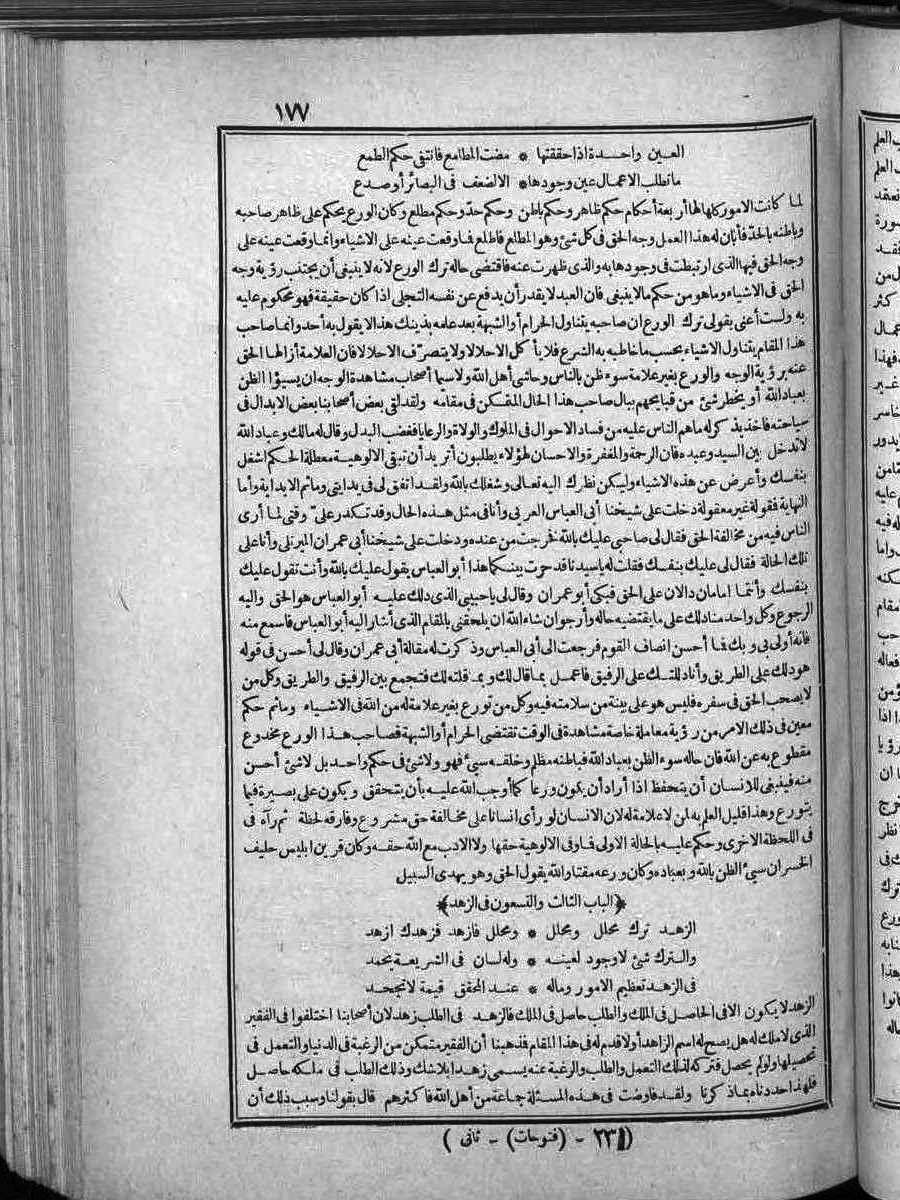 ١٧٧
العين واحدة اذا حققتها * مضت المطامع فانتفى حكم الطمع
ما تطلب الاعمال عين وجودها * الا لضعف فى البصائر أو صدع
لما كانت الامور كلها لها أربعة أحكام حكم ظاهر وحكم باطن وحكم حد وحكم مطلع وكان الورع يحكم على ظاهر صاحبه
وباطنه بالحد فأبان له هذا العمل وجه الحق فى كل شئ وهو المطلع فاطلع فما وقعت عينه على الاشياء وانما وقعت عينه على
وجه الحق فيها الذى ارتبطت فى وجودها به والذى ظهرت عنه فاقتضى حاله ترك الورع لانه لا ينبغى أن يجتنب رؤية وجه
الحق فى الاشياء وما هو من حكم ما لا ينبغى فان العبد لا يقدر أن يدفع عن نفسه التجلى اذا كان حقيقة فهو محكوم عليه
به ولست أعنى بقولى ترك الورع ان صاحبه يتناول الحرام أو الشبهة بعد علمه بذينك هذا لا يقول به أحد وانما صاحب
هذا المقام يتناول الاشياء بحسب ما خاطبه به الشرع فلا يأكل الاحلالا ولا يتصرّف الاحلالا فان العلامة أزالها الحق
عنه برؤية الوجه والورع بغير علامة سوء ظن بالناس وحاشى أهل الله ولا سيما أصحاب مشاهدة الوجه ان يسيؤا الظن
بعباد الله أو يخطر شئ من قبائحهم ببال صاحب هذا الحال المتمكن فى مقامه ولقد لقى بعض أصحابنا بعض الابدال فى
سياحته فاخذ يذكر له ما هم الناس عليه من فساد الاحوال فى الملوك والولاة والرعايا فغضب البدل وقال له مالك وعباد الله
لا تدخل بين السيد وعبده فان الرحمة والمغفرة والاحسان لهؤلاء يطلبون أتريد أن تبقى الالوهية معطلة الحكم اشغل
بنفسك وأعرض عن هذه الاشياء وليكن نظرك اليه تعالى وشغلك بالله ولقد اتفق لى فى بدايتى وما ثم الا بداية وأما
النهاية فقولة غير معقولة دخلت على شيخنا أبى العباس العربى وأنا فى مثل هذه الحال وقد تكدر علىّ وقتى لما أرى
الناس فيه من مخالفة الحق فقال لى صاحبى عليك بالله فخرجت من عنده ودخلت على شيخنا أبى عمران الميرتلى وأنا على
تلك الحالة فقال لى عليك بنفسك فقلت له يا سيدنا قد حرت بينكما هذا أبو العباس يقول عليك بالله وأنت تقول عليك
بنفسك وأنتما امامان دالان على الحق فبكى أبو عمران وقال لى يا حبيبى الذى دلك عليه أبو العباس هو الحق واليه
الرجوع وكل واحد منا دلك على ما يقتضيه حاله وأرجو ان شاء الله ان يلحقنى بالمقام الذى أشار اليه أبو العباس فاسمع منه
فانه أولى بى وبك فما أحسن انصاف القوم فرجعت الى أبى العباس وذكرت له مقالة أبى عمران وقال لى أحسن فى قوله
هو دلك على الطريق وأنا دللتك على الرفيق فاعمل بما قال لك وبما قلته لك فتجمع بين الرفيق والطريق وكل من
لا يصحب الحق فى سفره فليس هو على بينة من سلامته فيه وكل من تورع بغير علامة له من الله فى الاشياء وما ثم حكم
معين فى ذلك الامر من رؤية معاملة خاصة مشاهدة فى الوقت تقتضى الحرام أو الشبهة فصاحب هذا الورع مخدوع
مقطوع به عن الله فان حاله سوء الظن بعباد الله فباطنه مظلم وخلقه سيئ فهو ولا شئ فى حكم واحد بل لا شئ أحسن
منه فينبغى للانسان أن يتحفظ اذا أراد أن يكون ورعا كما أوجب الله عليه بأن يتحقق ويكون على بصيرة فيما
يتورع وهذا قليل العلم به لمن لا علامة له لان الانسان لو رأى انسانا على مخالفة حق مشروع وفارقه لحظة ثم رآه فى
فى اللحظة الاخرى وحكم عليه بالحالة الاولى فما وفى الالوهية حقها ولا الادب مع الله حقه وكان قرين ابليس حليف
الخسران سيئ الظن بالله وبعباده وكان ورعه مقتا والله يقول الحق وهو يهدى السبيل
﴿الباب الثالث والتسعون فى الزهد﴾
الزهد ترك محلل ومحلل * ومحلل فازهد فزهدك ازهد
والترك شئ لا وجود لعينه * وله لسان فى الشريعة يحمد
فى الزهد تعظيم الامور وماله * عند المحقق قيمة لا تجحد
الزهد لا يكون الا فى الحاصل فى الملك والطلب حاصل فى الملك فالزهد فى الطلب زهد لان أصحابنا اختلفوا فى الفقير
الذى لا ملك له هل يصح له اسم الزاهد أو لا قدم له فى هذا المقام فذهبنا أن الفقير متمكن من الرغبة فى الدنيا والتعمل فى
تحصيلها ولو لم يحصل فتركه لذلك التعمل والطلب والرغبة عنه يسمى زهدا بلا شك وذلك الطلب فى ملكه حاصل
فلهذا حددناه بما ذكرنا ولقد فاوضت فى هذه المسئلة جماعة من أهل الله فاكثرهم قال بقولنا وسبب ذلك أن
(٢٣ - (فتوحات) - ثانى )